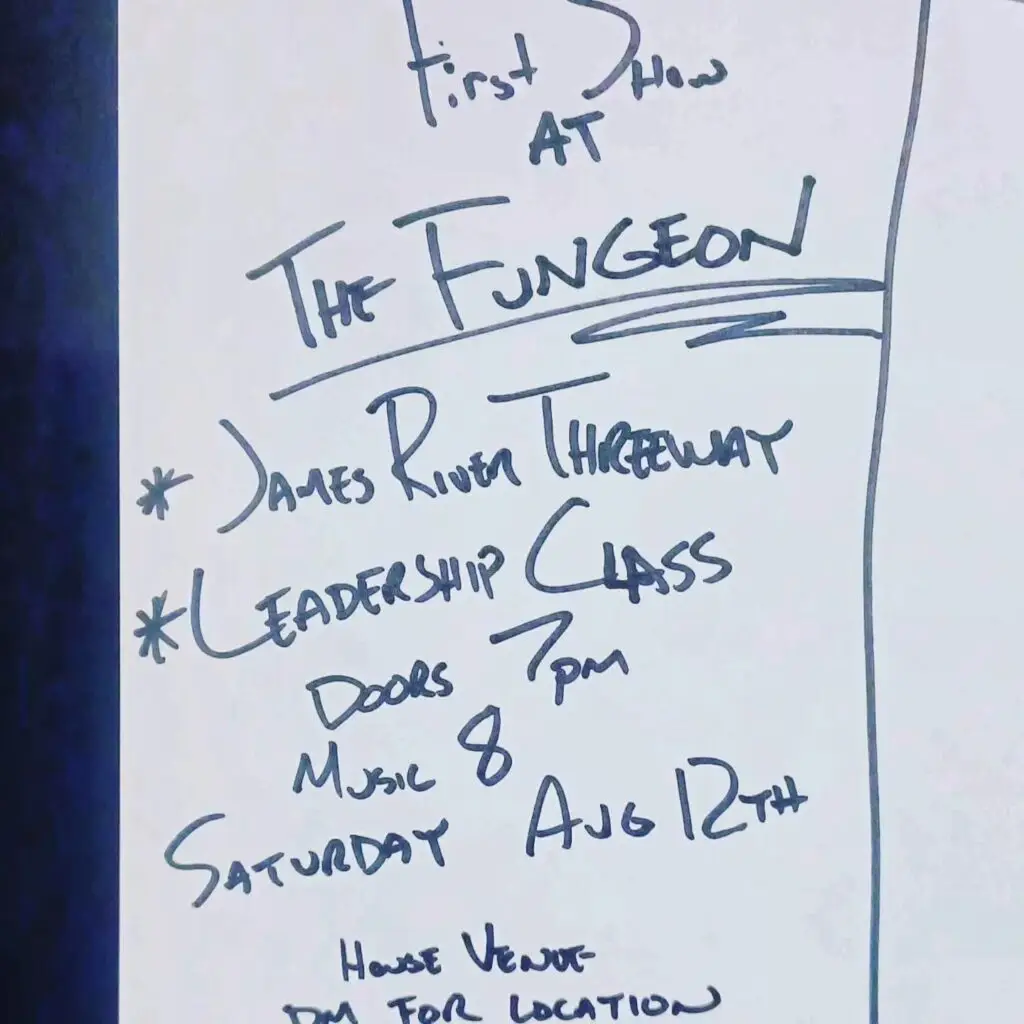 First Show
AT
THE FUNGEON
* JAMES RIVER THREEWAY
* LEADERSHIP CLASS
DOORS 7pm
MUSIC 8
SATURDAY AUG 12TH
HOUSE VENUE
DM FOR LOCATION